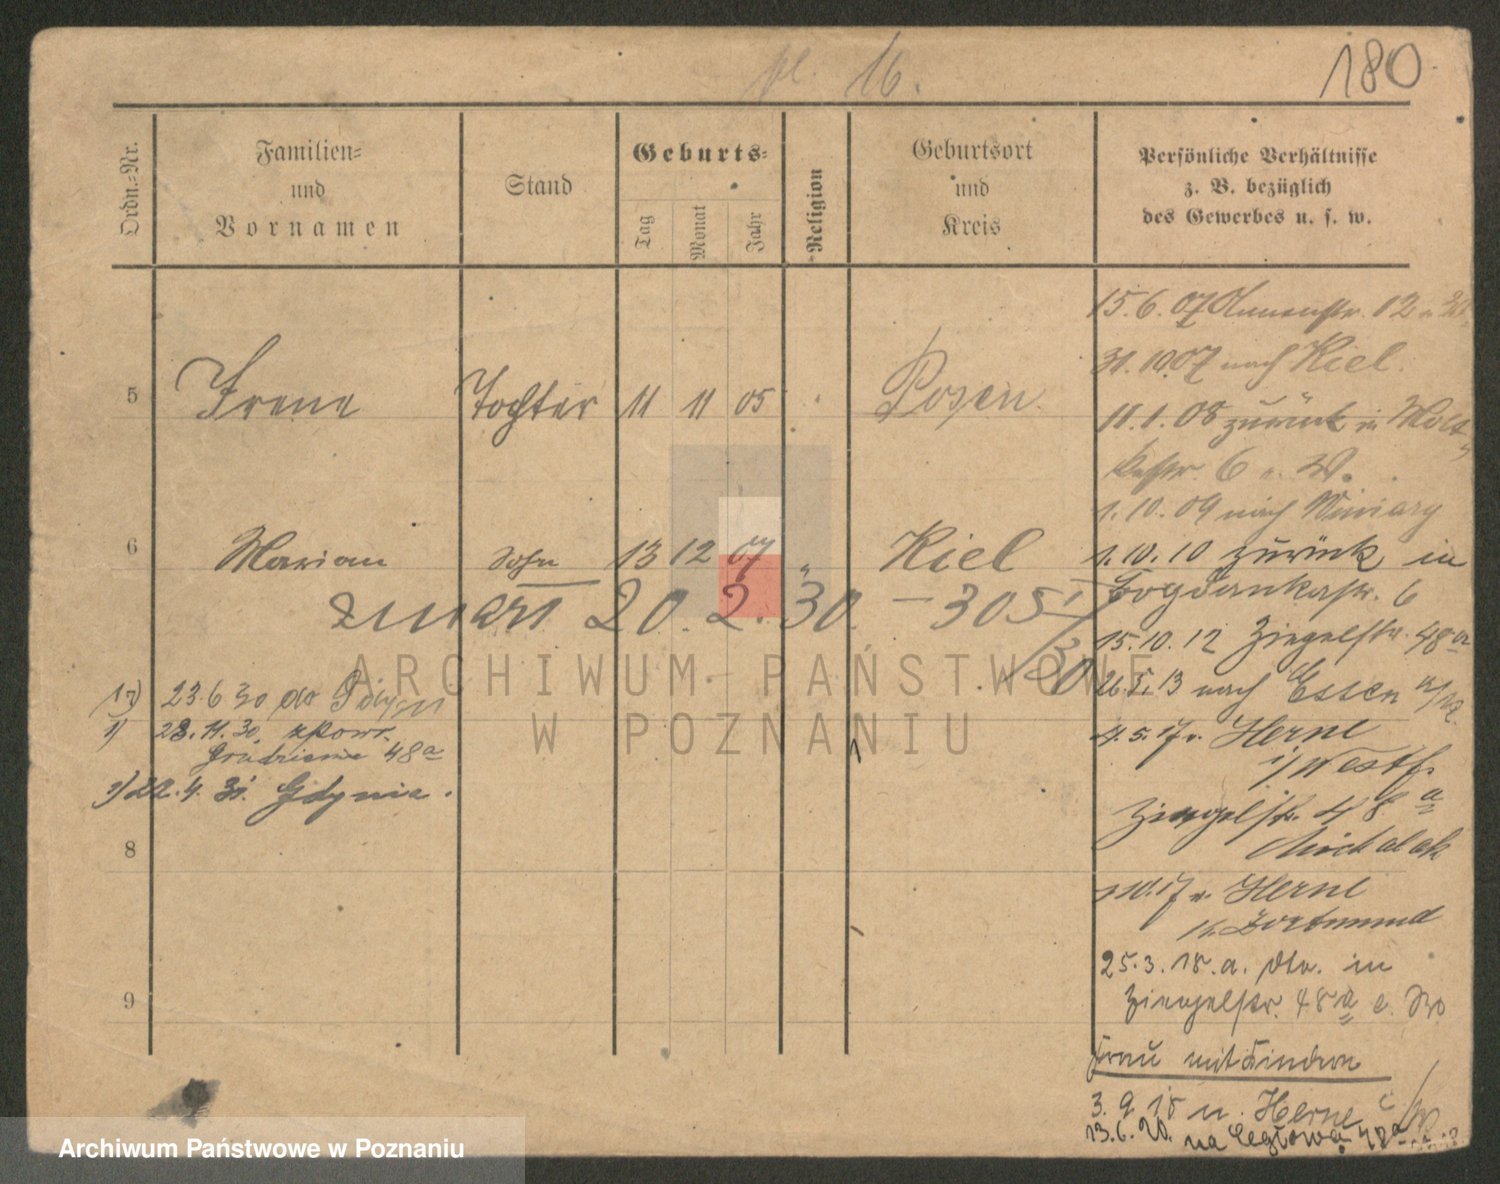 16.
180
Ordn.-Nr.
Familien-
und
Vornamen
Stand
Geburts-
Tag
Monat
Jahr
Religion
Geburtsort
und
Kreis
Persönliche Verhältnisse
z. B. bezüglich
des Gewerbes u. s. w.
5
Irene
Tochter
11
11
05
Posen
6
Marian
Sohn
13
12
07
"
Kiel
zmarł 20. 2. 30 – 305
23.6 30 do Gdyni
28. 11. 30.
48a
22. 4. 31. Gdynia.
8
9
15.6.07 12
31.10.07 nach Kiel.
11.1.08 zurück in Molt
kestr. 6
1.10.09 nach Winiary
1.10.10 zurück in
Bogdankastr. 6
15.10.12 Ziegelstr. 48a
26.5.13 nach Essen
4.5.17 v. Herne
i/Westf.
Ziegelstr. 48a
Michalak
10.17 n. Herne
n. Dortmund
25.3.18. a. Dtm. in
Ziegelstr. 48a
Frau mit Kindern
3.9.18 n. Herne
13.6.20. na Ceglową 48a
ARCHIWUM PAŃSTWOWE
W POZNANIU
Archiwum Państwowe w Poznaniu